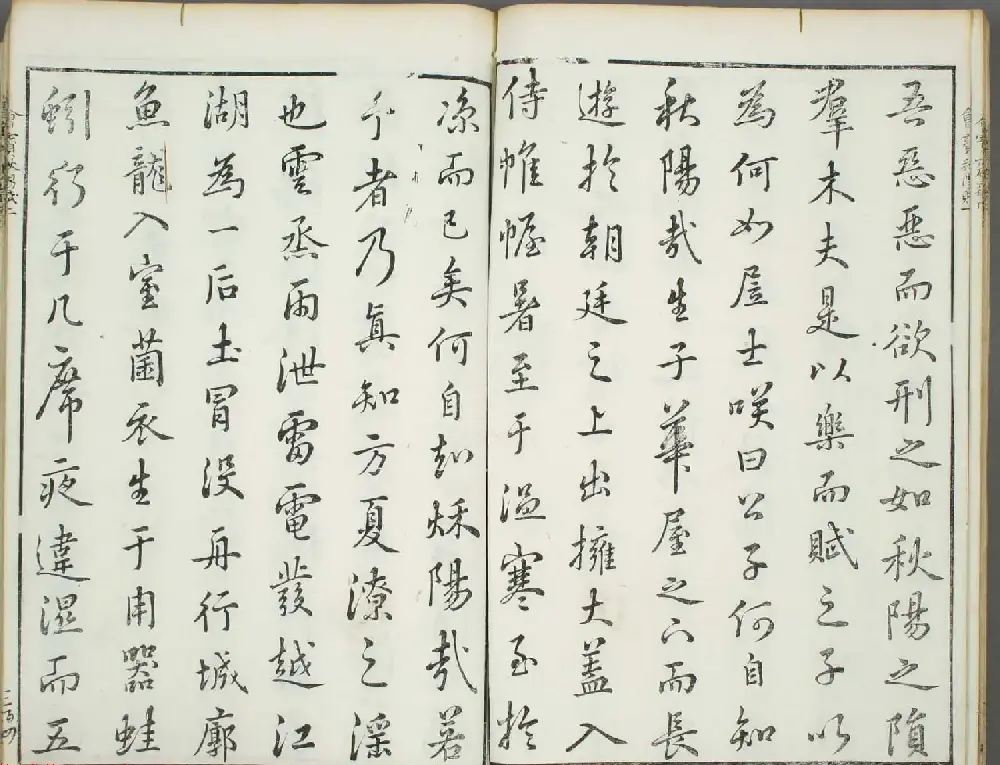 吾惡惡而欲刑之如秋陽之隕
羣木夫是以樂而賦之子以
為何如居士咲曰公子何自知
秋陽哉生子華屋之下而長
遊於朝廷之上出擁大蓋入
侍帷幄暑至于温寒至於
凉而已矣何自知秌陽哉若
予者乃真知方夏潦之淫
也雲烝雨泄雷電發越江
湖為一后土冒没舟行城廓
魚龍入室菌衣生于用器蛙
蚓行于几席夜違濕而五